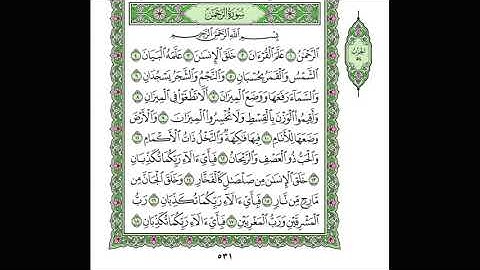 سُورَةُ الرَّحْمَٰن
بِسْمِ ٱللَّهِ ٱلرَّحْمَٰنِ ٱلرَّحِيمِ
ٱلرَّحْمَٰنُ ١ عَلَّمَ ٱلْقُرْءَانَ ٢ خَلَقَ ٱلْإِنسَٰنَ ٣ عَلَّمَهُ ٱلْبَيَانَ ٤
ٱلشَّمْسُ وَٱلْقَمَرُ بِحُسْبَانٍ ٥ وَٱلنَّجْمُ وَٱلشَّجَرُ يَسْجُدَانِ ٦
وَٱلسَّمَآءَ رَفَعَهَا وَوَضَعَ ٱلْمِيزَانَ ٧ أَلَّا تَطْغَوْا۟ فِى ٱلْمِيزَانِ ٨
وَأَقِيمُوا۟ ٱلْوَزْنَ بِٱلْقِسْطِ وَلَا تُخْسِرُوا۟ ٱلْمِيزَانَ ٩ وَٱلْأَرْضَ
وَضَعَهَا لِلْأَنَامِ ١٠ فِيهَا فَٰكِهَةٌ وَٱلنَّخْلُ ذَاتُ ٱلْأَكْمَامِ ١١
وَٱلْحَبُّ ذُو ٱلْعَصْفِ وَٱلرَّيْحَانُ ١٢ فَبِأَىِّ ءَالَآءِ رَبِّكُمَا تُكَذِّبَانِ
١٣ خَلَقَ ٱلْإِنسَٰنَ مِن صَلْصَٰلٍ كَٱلْفَخَّارِ ١٤ وَخَلَقَ ٱلْجَآنَّ مِن
مَّارِجٍ مِّن نَّارٍ ١٥ فَبِأَىِّ ءَالَآءِ رَبِّكُمَا تُكَذِّبَانِ ١٦ رَبُّ
ٱلْمَشْرِقَيْنِ وَرَبُّ ٱلْمَغْرِبَيْنِ ١٧ فَبِأَىِّ ءَالَآءِ رَبِّكُمَا تُكَذِّبَانِ ١٨
٥٣١
الحزب
٥٤